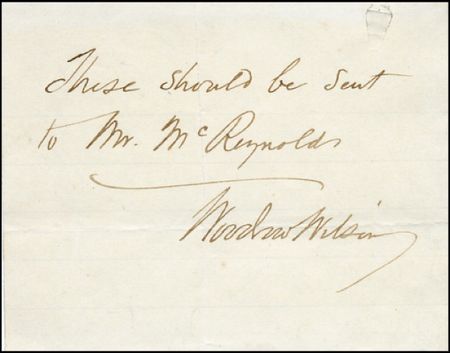 These should be sent
to Mr. McReynolds
Woodrow Wilson